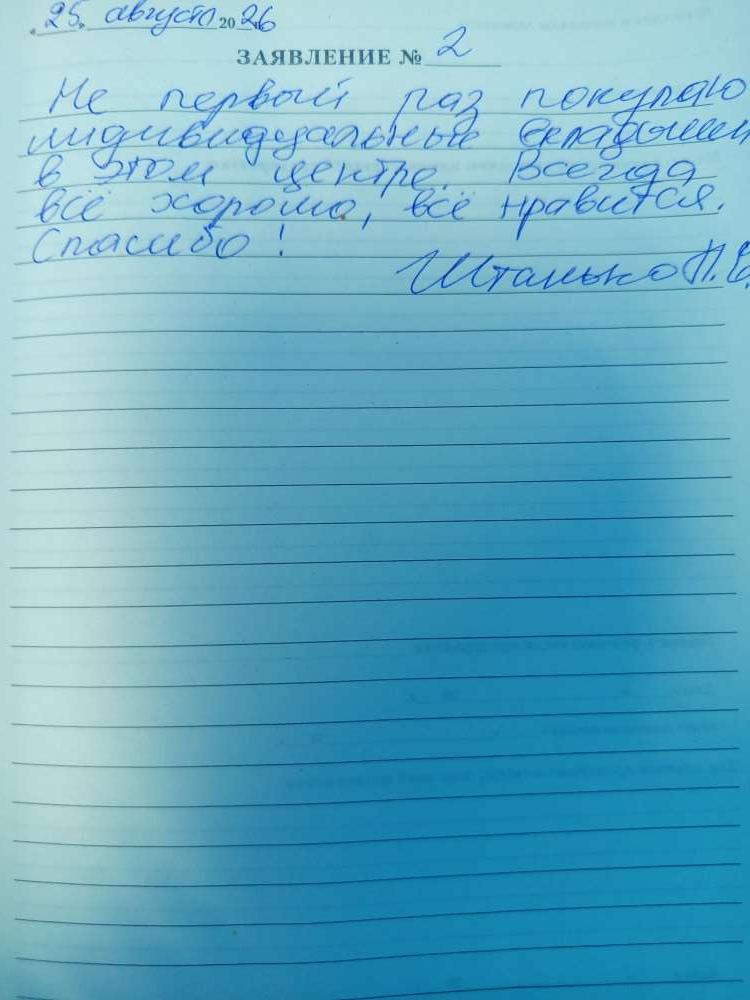 "25" августа 2026
ЗАЯВЛЕНИЕ № 2
Не первый раз покупаю
индивидуальные вкладыши
в этом центре. Всегда
всё хорошо, всё нравится.
Спасибо!
Штанько П.В.